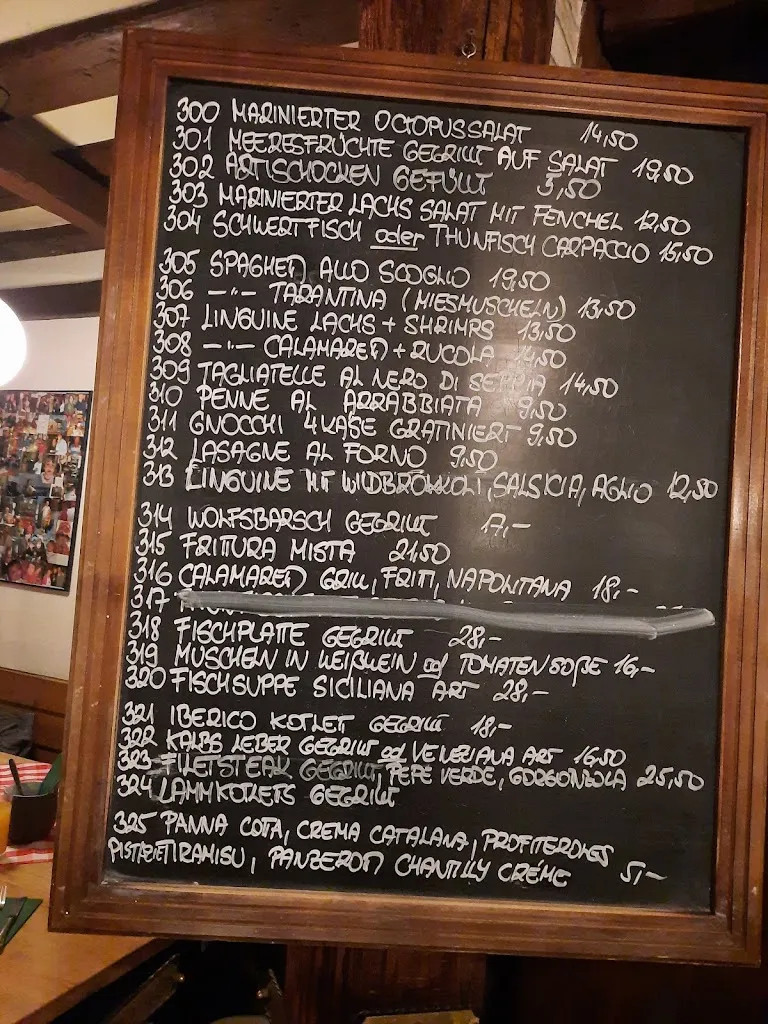 300 MARINIERTER OCTOPUSSALAT 14,50
301 MEERESFRÜCHTE GEGRILLT AUF SALAT 19,50
302 ARTISCHOCKEN GEFÜLLT 5,50
303 MARINIERTER LACHS SALAT MIT FENCHEL 12,50
304 SCHWERTFISCH oder THUNFISCH CARPACCIO 15,50
305 SPAGHETTI ALLO SCOGLIO 19,50
306 —"— TARANTINA (MIESMUSCHELN) 13,50
307 LINGUINE LACHS + SHRIMPS 13,50
308 —"— CALAMARETTI + RUCOLA 14,50
309 TAGLIATELLE AL NERO DI SEPPIA 14,50
310 PENNE AL ARRABBIATA 9,50
311 GNOCCHI 4 KÄSE GRATINIERT 9,50
312 LASAGNE AL FORNO 9,50
313 LINGUINE MIT WILDBROKKOLI, SALSICIA, AGLIO 12,50
314 WOLFSBARSCH GEGRILLT 17,-
315 FRITURA MISTA 21,50
316 CALAMARETTI GRILL, FRITTI, NAPOLITANA 18,-
317
318 FISCHPLATTE GEGRILLT 28,-
319 MUSCHELN IN WEIßWEIN od TOMATENSOßE 16,-
320 FISCHSUPPE SICILIANA ART 28,-
321 IBERICO KOTLET GEGRILLT 18,-
322 KALBS LEBER GEGRILLT od VENEZIANA ART 16,50
323 FILETSTEAK GEGRILLT, PEPE VERDE, GORGONZOLA 25,50
324 LAMMKOTLETS GEGRILLT
325 PANNA COTA, CREMA CATALANA, PROFITEROLES
PISTAZIETIRAMISU, PANZEROTTI CHANTILLY CRÉME 5,-